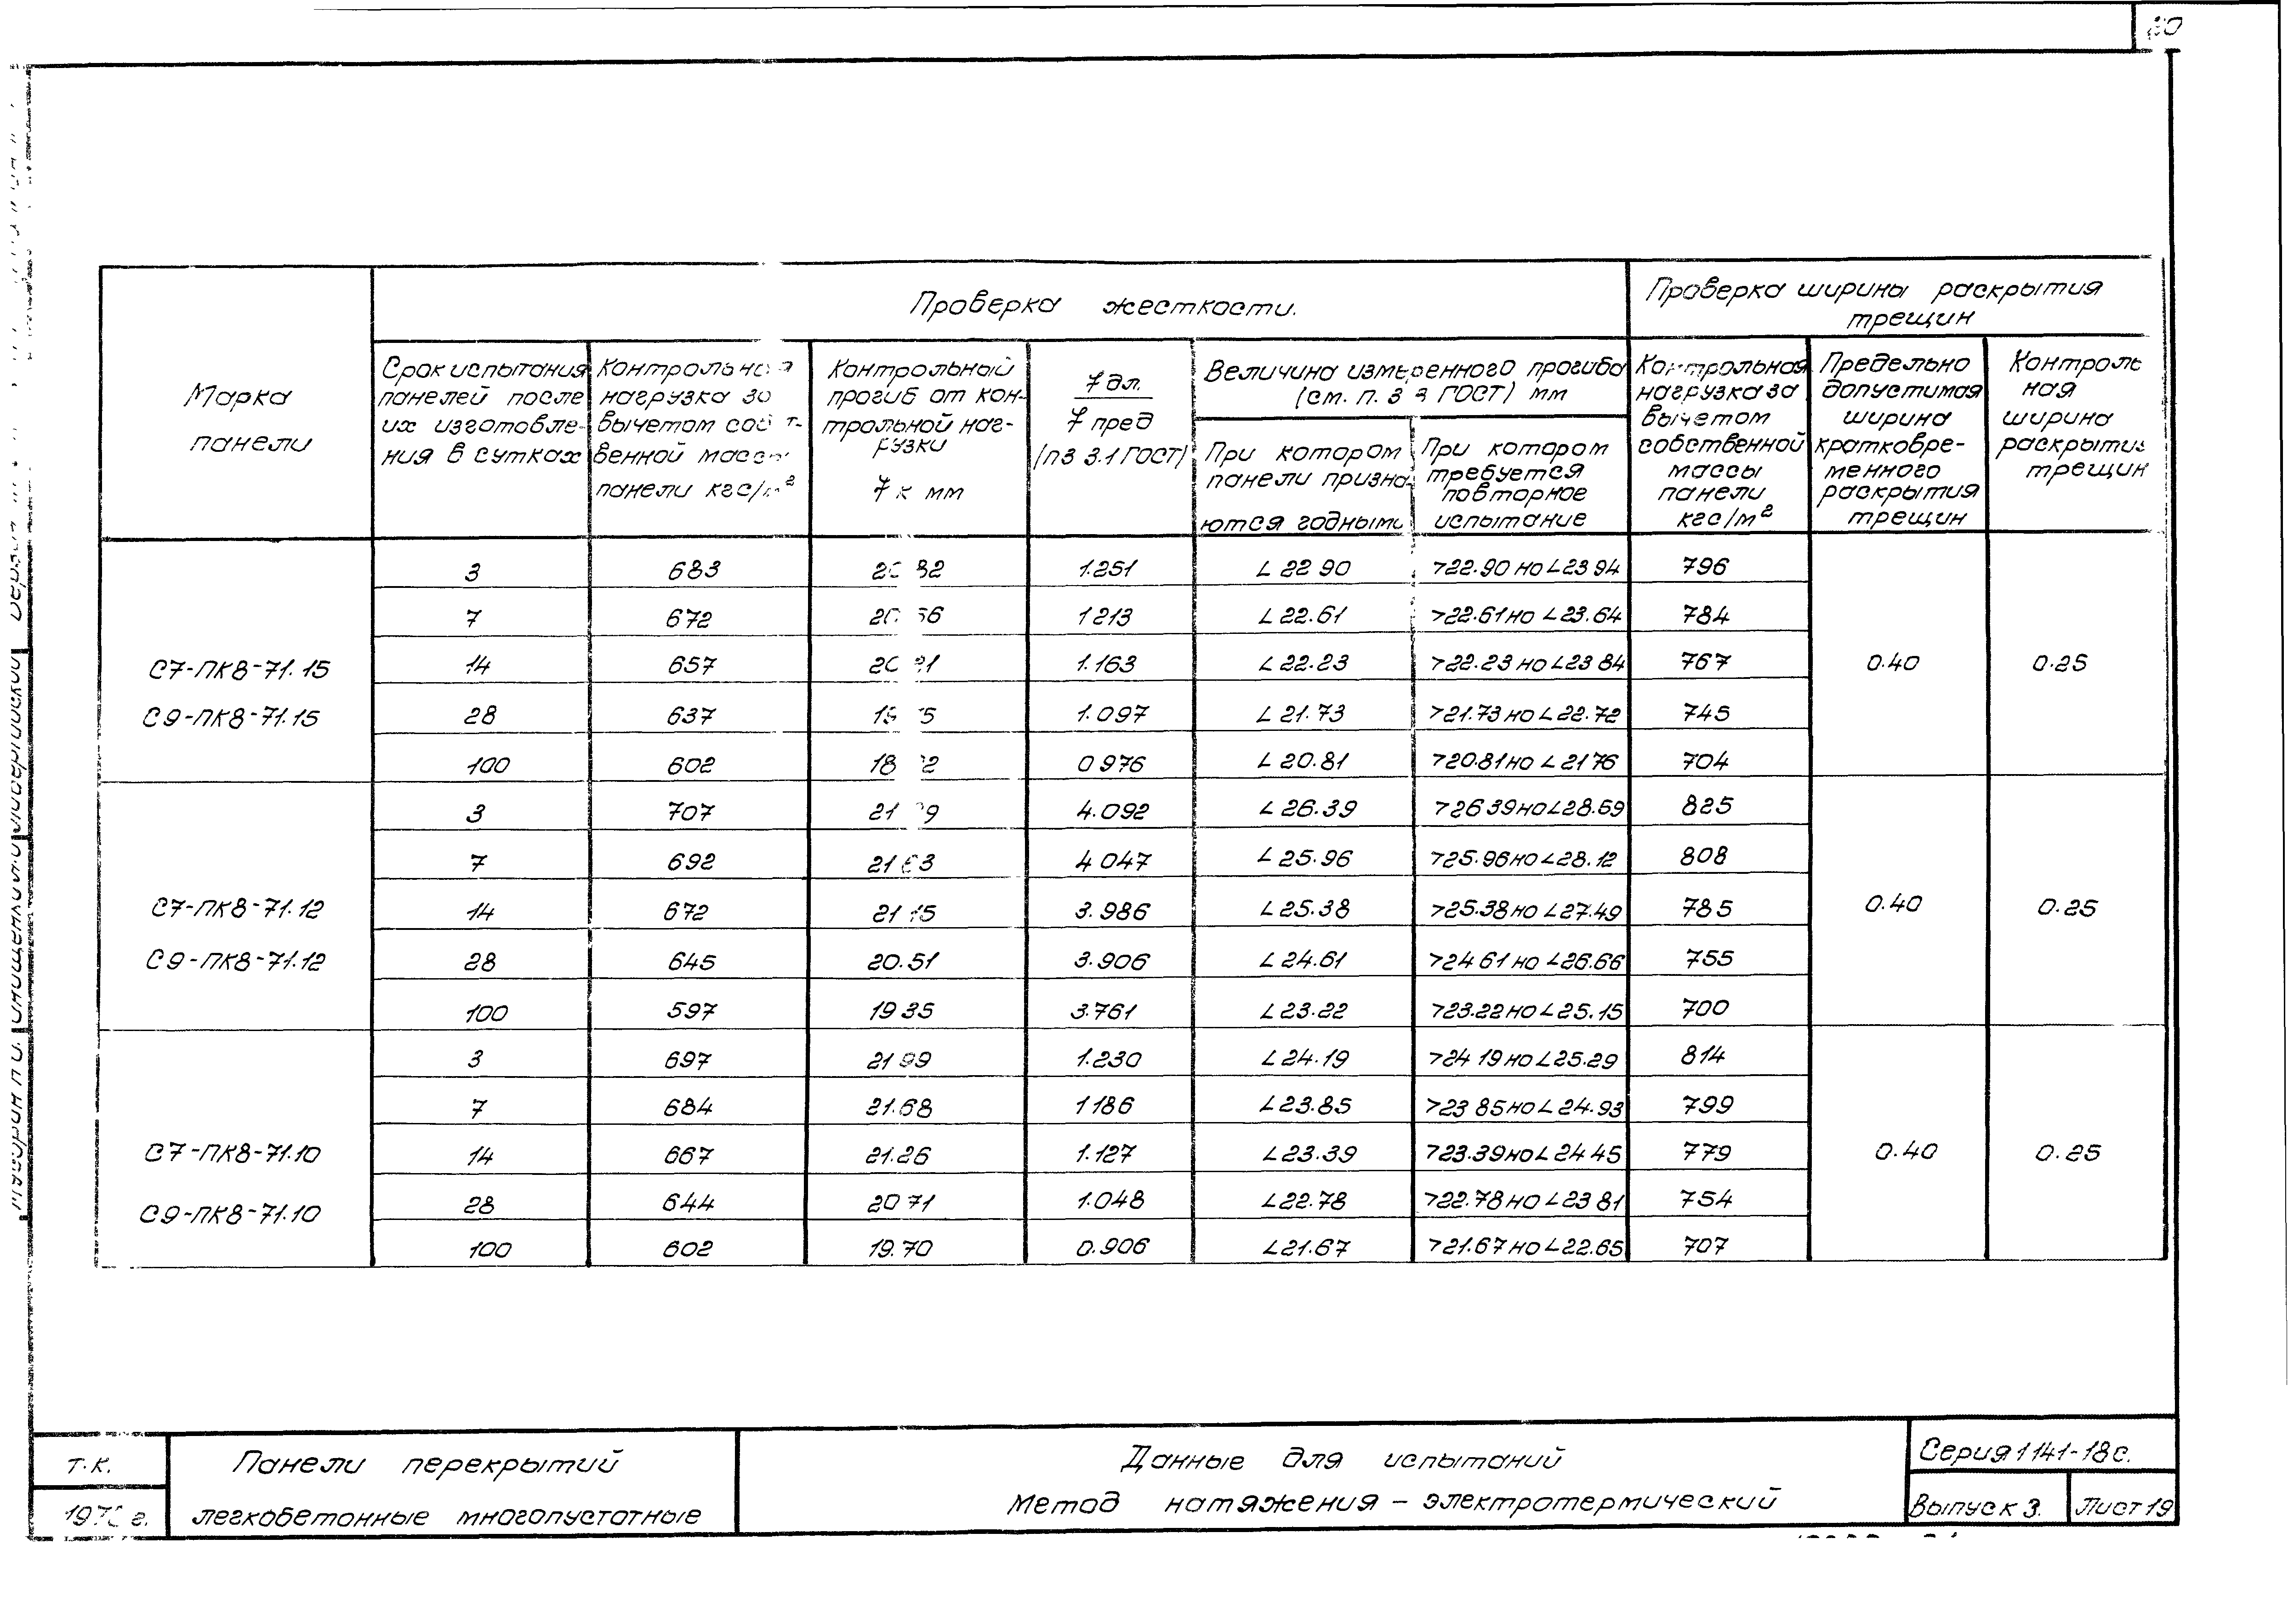 Марка
панели
Проверка жесткости.
Проверка ширины раскрытия
трещин
Срок испытания
панелей после
их изготовле-
ния в сутках
нагрузка
вычетом
венной
панели
Контрольный
прогиб от кон-
трольной наг-
рузки
f к мм
f дл.
f пред
(п3 3.1 ГОСТ)
Величина измеренного прогиба
(см. п. 3 3 ГОСТ) мм
При котором
панели призна-
ются годными
При котором
требуется
повторное
испытание
Контрольная
нагрузка за
вычетом
собственной
массы
панели
кгс/м²
Предельно
допустимая
ширина
кратковре-
менного
раскрытия
трещин
Контроль
ная
ширина
трещин
С7-ПК8-71.15
С9-ПК8-71.15
3 683 1.251 < 22 90 >22.90 но <23 94 796
7 672 1 213 < 22.61 >22.61 но <23.64 784
14 657 1.163 < 22.23 >22.23 но <23 84 767 0.40 0.25
28 637 1.097 < 21.73 >21.73 но <22.72 745
100 602 0 976 < 20.81 >20.81 но <21 76 704
С7-ПК8-71.12
С9-ПК8-71.12
3 707 4.092 < 26.39 >26 39 но <28.69 825
7 692 4 047 < 25.96 >25.96 но <28.12 808
14 672 3.986 < 25.38 >25.38 но <27.49 785 0.40 0.25
28 645 20.51 3.906 < 24.61 >24 61 но <26.66 755
100 597 19 35 3.761 < 23.22 >23.22 но <25.15 700
С7-ПК8-71.10
С9-ПК8-71.10
3 697 21 99 1.230 < 24.19 >24 19 но <25.29 814
7 684 21.68 1 186 < 23.85 >23 85 но <24.93 799
14 667 21.26 1.127 < 23.39 >23.39 но <24 45 779 0.40 0.25
28 644 20 71 1.048 < 22.78 >22.78 но <23 81 754
100 602 19.70 0.906 < 21.67 >21.67 но <22.65 707
т.к.
Панели перекрытий
легкобетонные многопустотные
Данные для испытаний
Метод натяжения – электротермический
Серия 1 141-18с.
Выпуск 3.
Лист 19